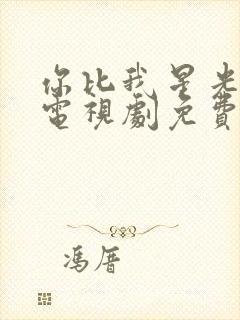 你比我星光
電視劇免費
馮厝